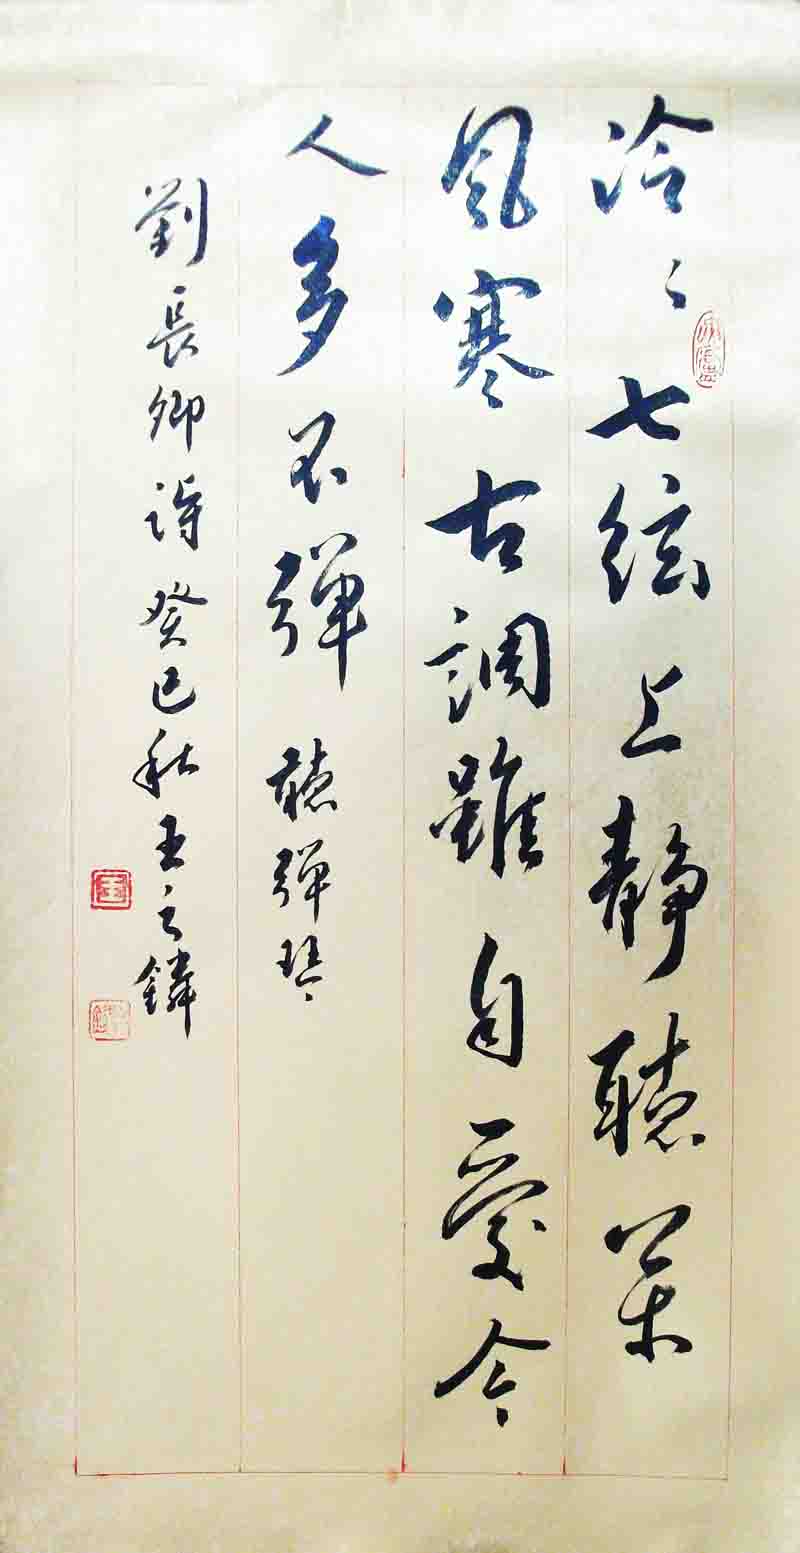 泠〻七絃上静聽枀
風寒古調雖自愛今
人多不彈 聽彈琴
劉長卿詩 癸巳秋王之鏻